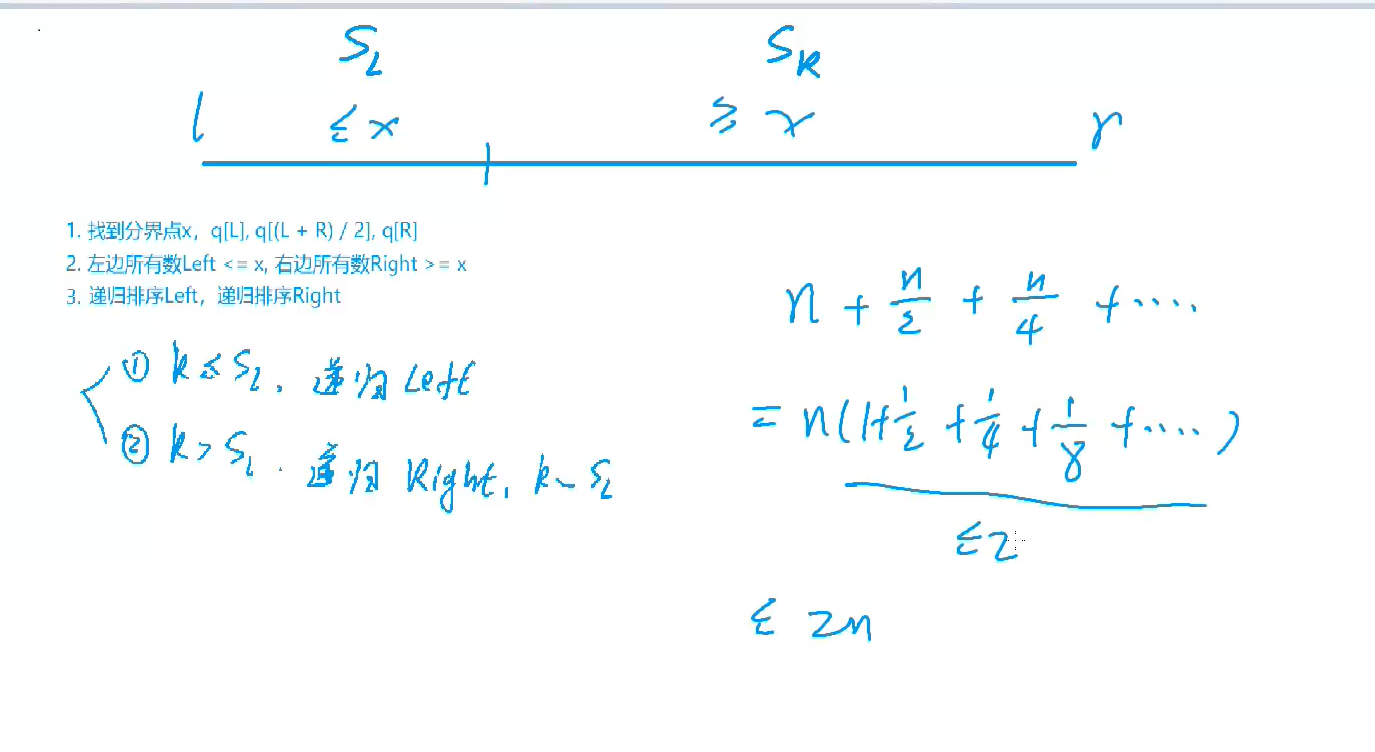 S_L S_R
l ≤ x ≥ x r
1. 找到分界点x，q[L], q[(L + R) / 2], q[R]
2. 左边所有数Left <= x, 右边所有数Right >= x
3. 递归排序Left，递归排序Right
① k ≤ S_L. 递归 Left
② k > S_L. 递归 Right, k - S_L
n + n/2 + n/4 + ....
= n(1+1/2 + 1/4 + 1/8 + ....)
≤2
≤ 2n